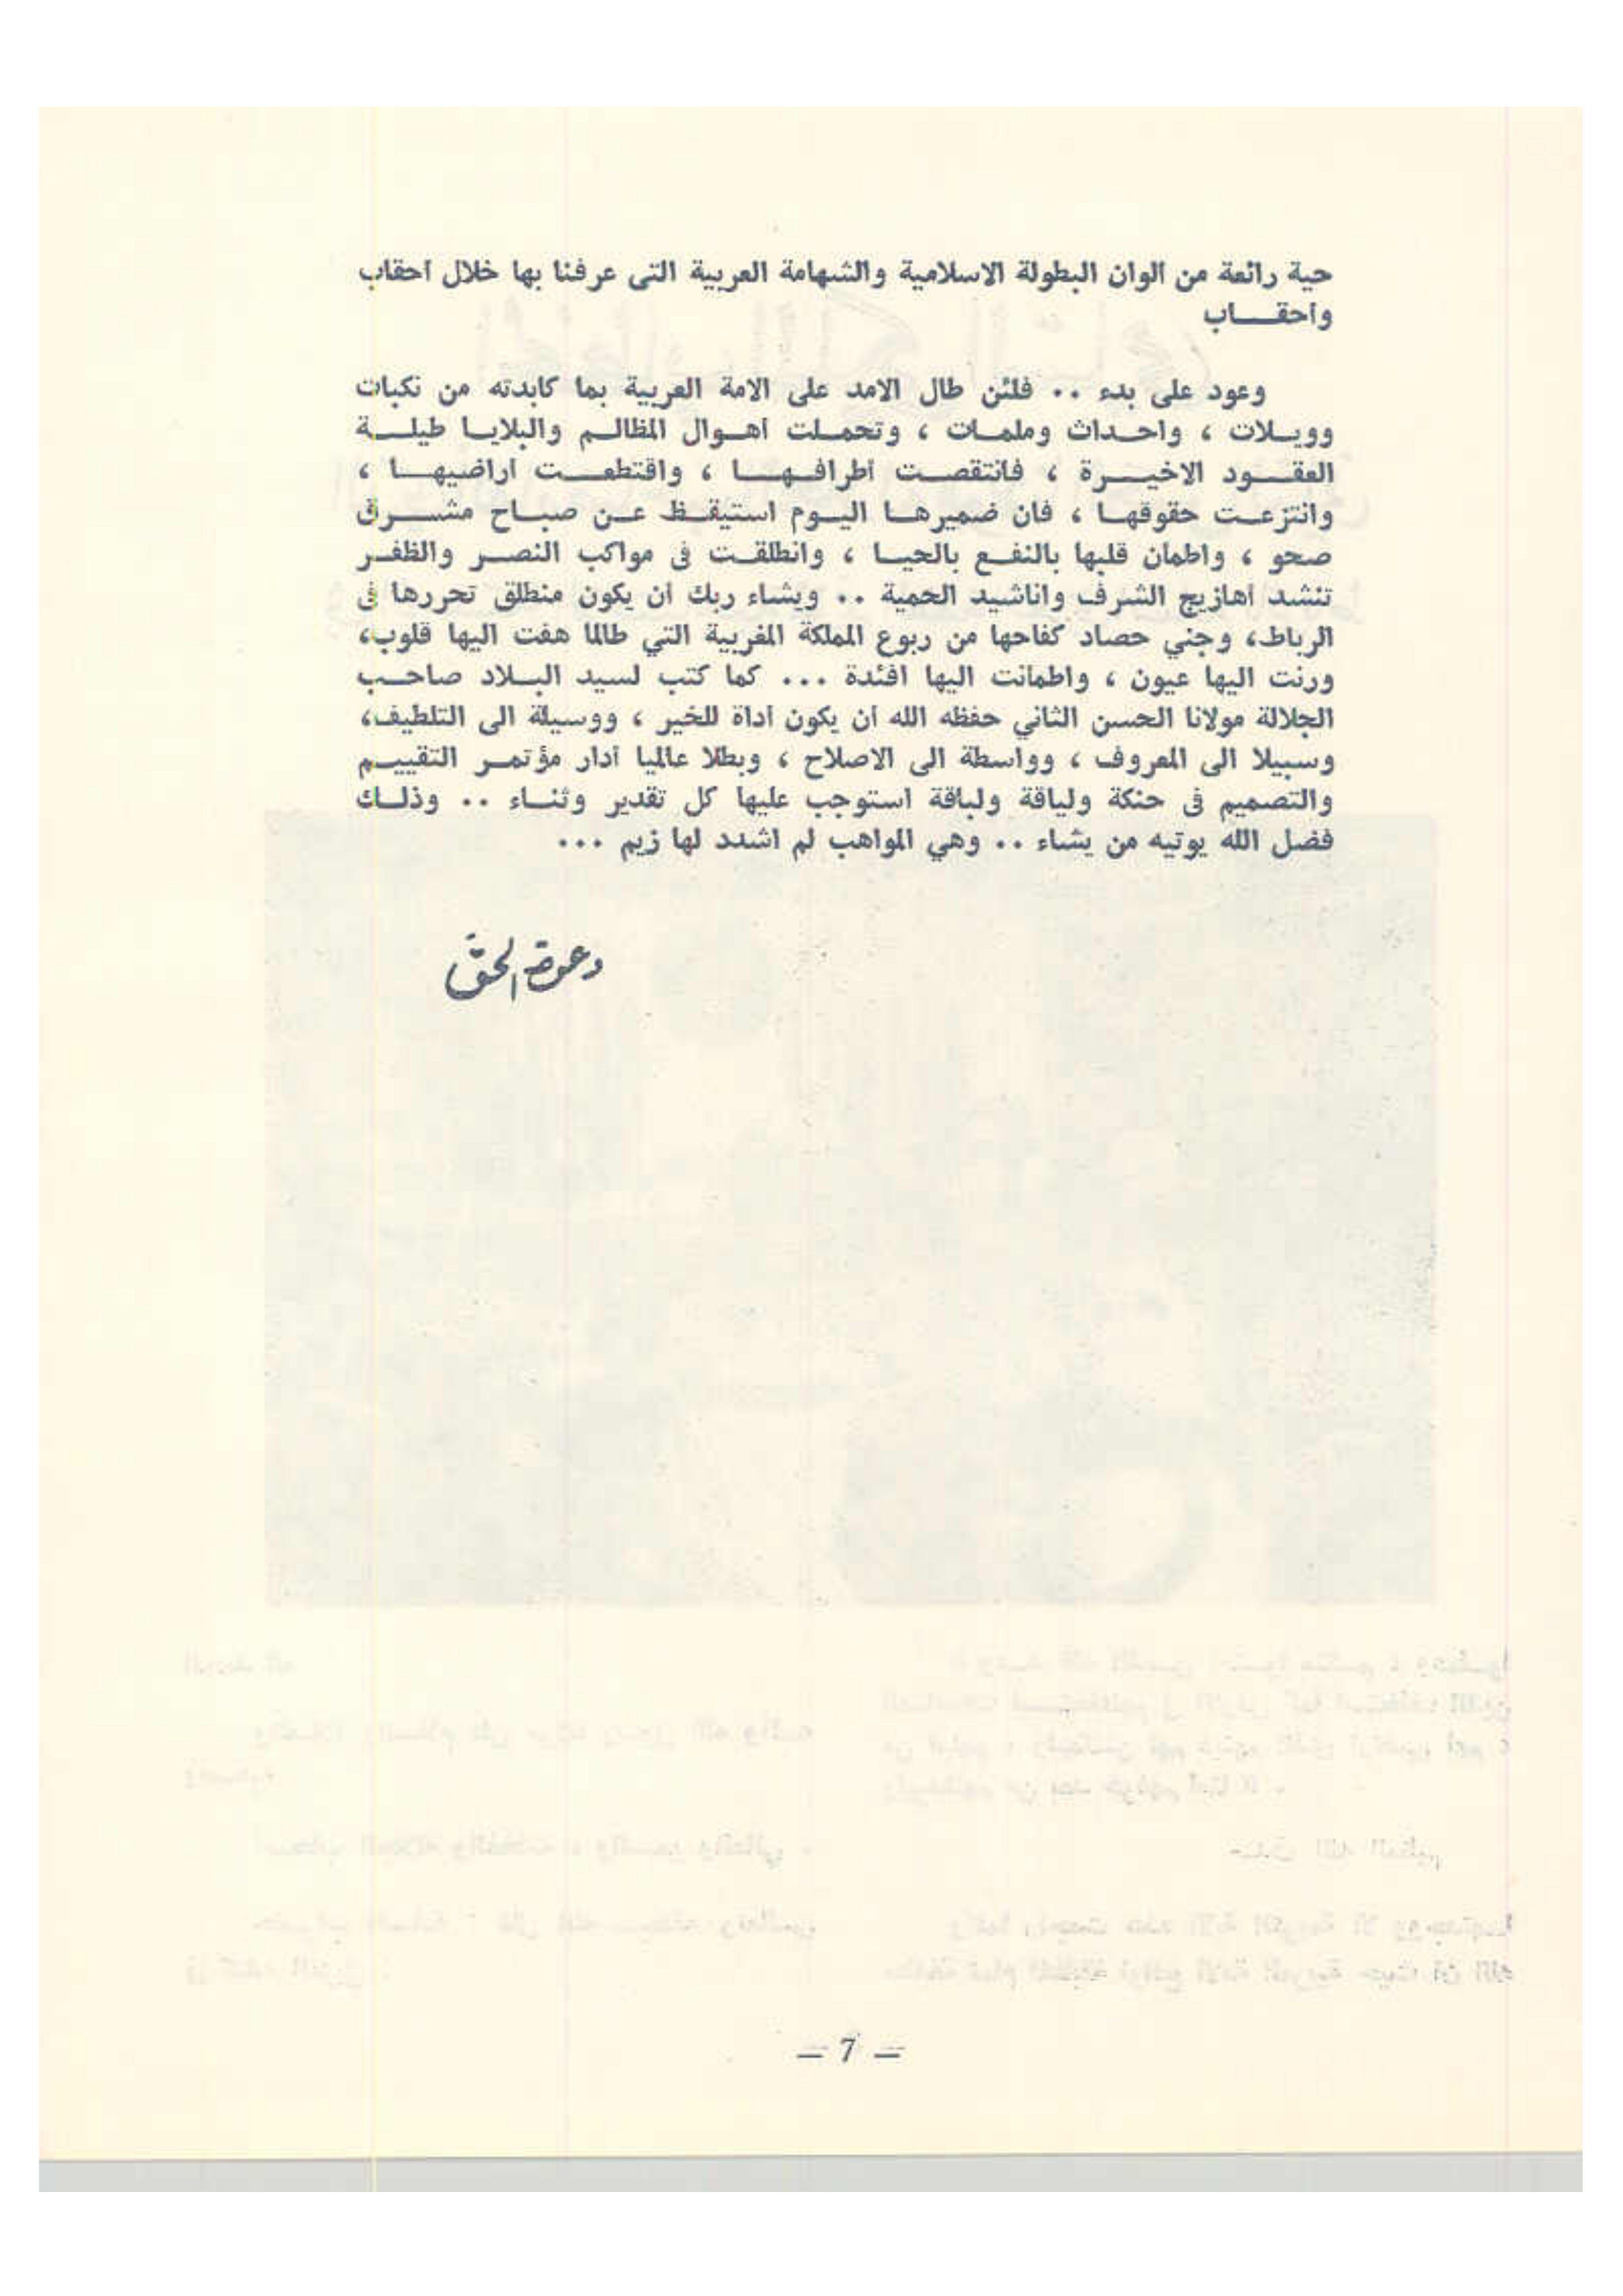 حية رائعة من الوان البطولة الاسلامية والشهامة العربية التى عرفنا بها خلال احقاب
واحقـــاب
وعود على بدء .. فلئن طال الامد على الامة العربية بما كابدته من نكبات
وويـلات ، واحـداث وملمـات ، وتحملـت اهـوال المظالـم والبلايـا طيلـــة
العقـــود الاخيـــرة ، فانتقصـت أطرافـــهـــا ، واقتطعـــت اراضيهـــا ،
وانتزعـت حقوقهـا ، فان ضميرهـا اليـوم استيقـظ عـن صبـاح مشـــرق
صحو ، واطمان قلبها بالنفـع بالحيـا ، وانطلقـت فى مواكب النصـر والظفـر
تنشد اهازيج الشرف واناشيد الحمية .. ويشاء ربك ان يكون منطلق تحررها فى
الرباط، وجني حصاد كفاحها من ربوع المملكة المغربية التي طالما هفت اليها قلوب،
ورنت اليها عيون ، واطمانت اليها افئدة ... كما كتب لسيد البـلاد صاحـب
الجلالة مولانا الحسن الثاني حفظه الله ان يكون اداة للخير ، ووسيلة الى التلطيف،
وسبيلا الى المعروف ، وواسطة الى الاصلاح ، وبطلا عالميا أدار مؤتمـر التقييـم
والتصميم فى حنكة ولياقة ولباقة استوجب عليها كل تقدير وثنـاء .. وذلـك
فضل الله يوتيه من يشاء .. وهي المواهب لم اشدد لها زيم ...
دعوة الحق
— 7 —